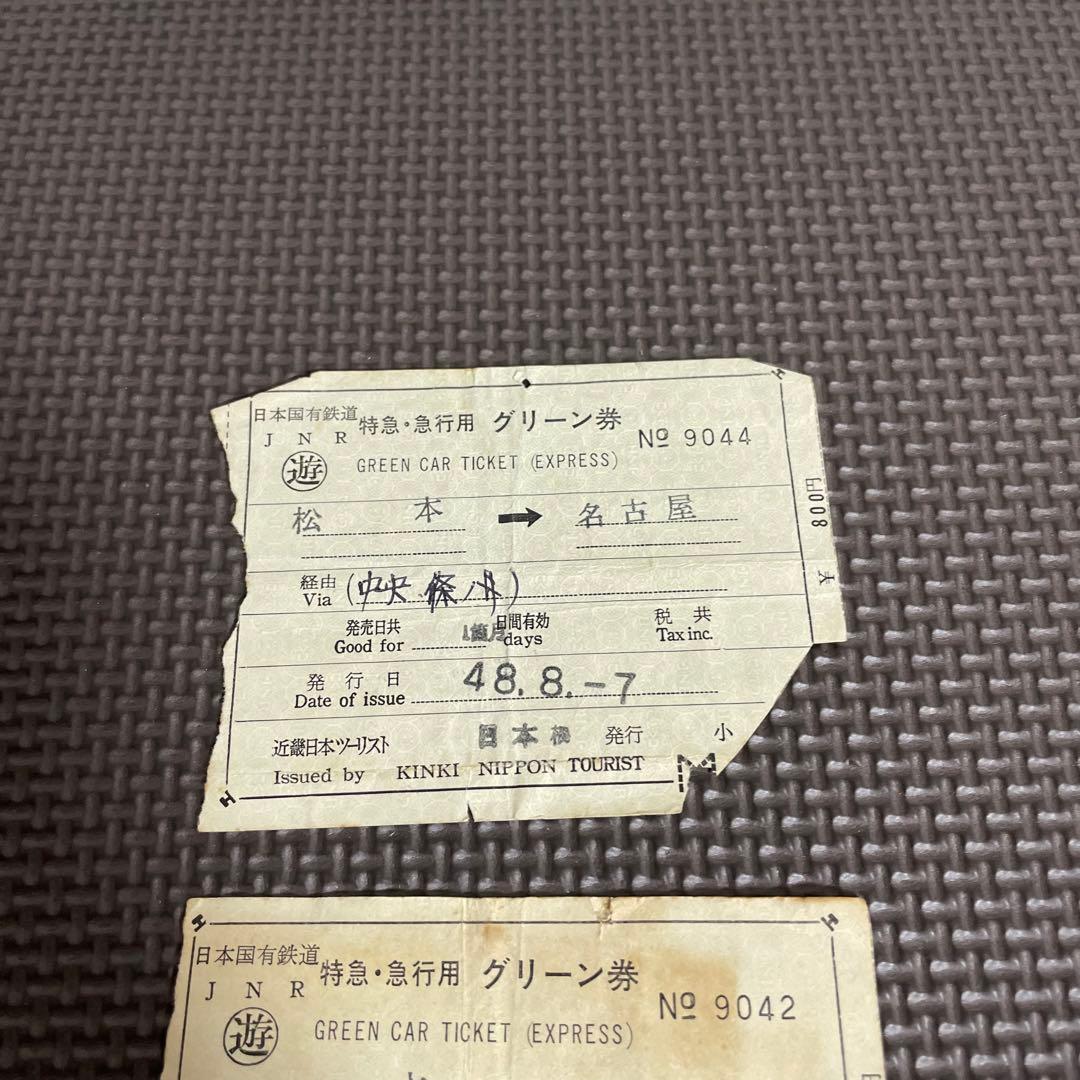 日本国有鉄道 特急・急行用 グリーン券 № 9044
J N R
遊 GREEN CAR TICKET (EXPRESS)
松本 → 名古屋
800円
経由 (中央 篠ノ井)
Via
大
発売日共 1箇月 日間有効 税共
Good for days Tax inc.
発行日 48.8.-7
Date of issue
近畿日本ツーリスト 日本橋 発行 小
Issued by KINKI NIPPON TOURIST
日本国有鉄道 特急・急行用 グリーン券 № 9042
J N R
遊 GREEN CAR TICKET (EXPRESS)